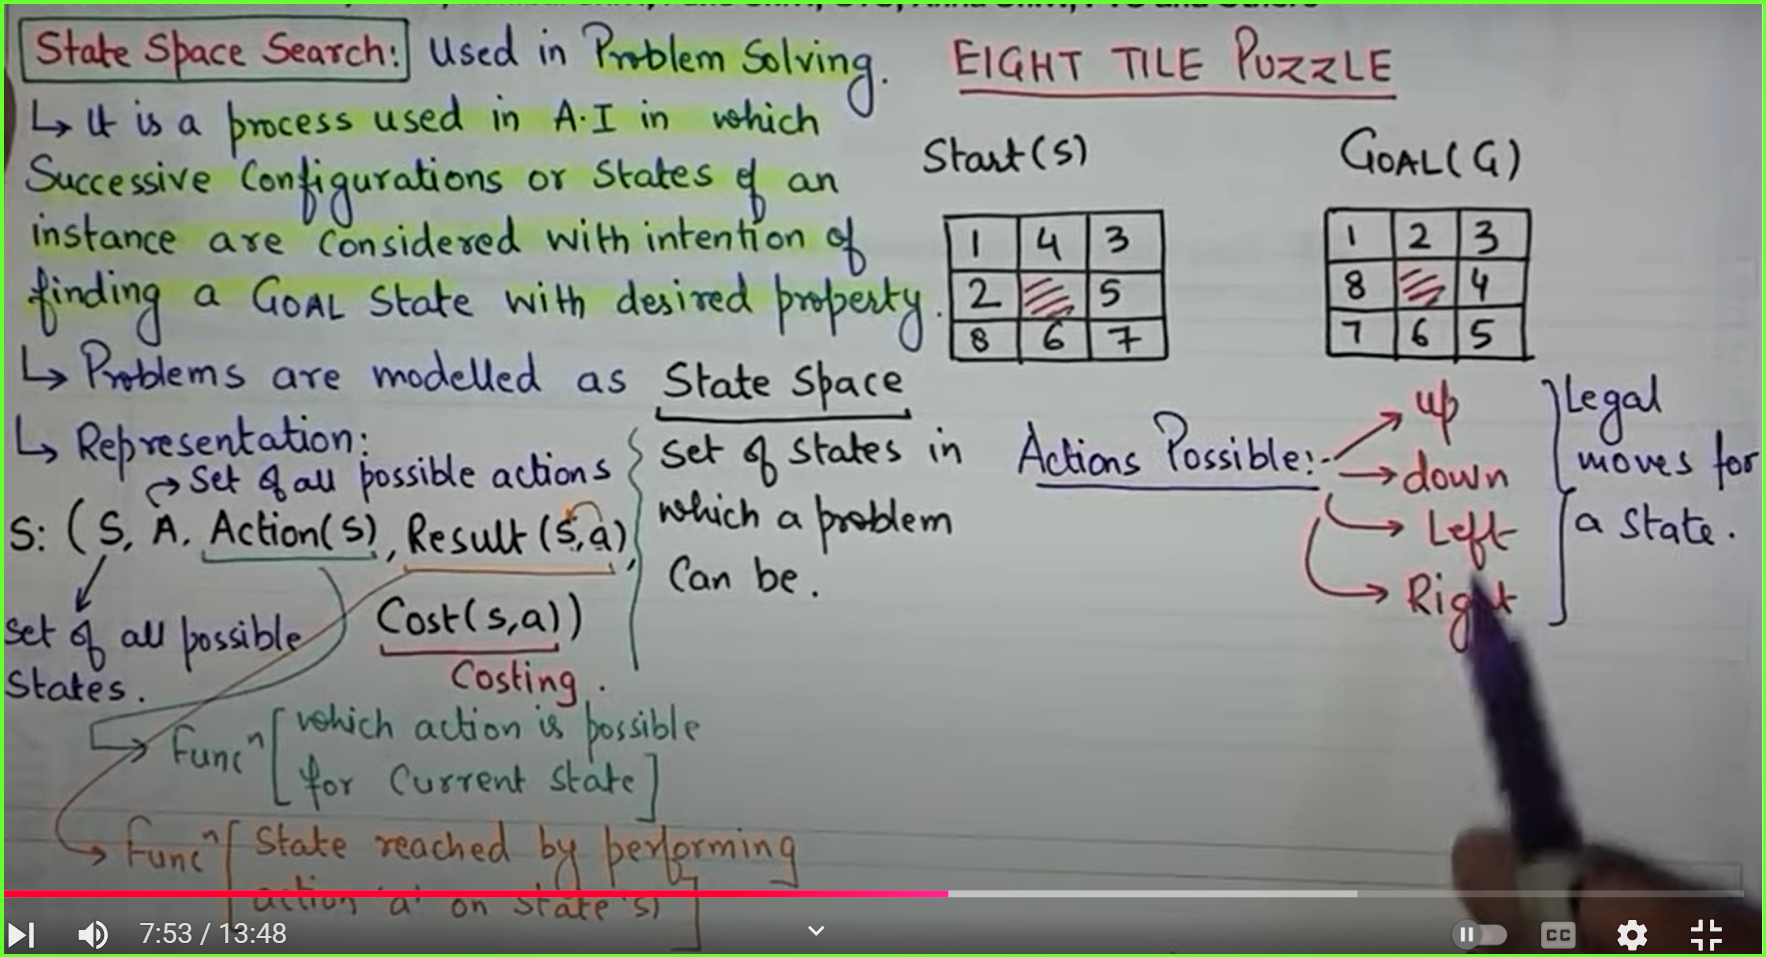 State Space Search: Used in Problem Solving.
↳ It is a process used in A.I in which
Successive Configurations or States of an
instance are Considered with intention of
finding a GOAL State with desired property.
↳ Problems are modelled as State Space
↳ Representation:
→ Set of all possible actions
S: (S, A, Action(S), Result(s,a),
Cost(s,a))
Costing.
Set of all possible
States.
Set of States in
which a problem
Can be.
Funcⁿ [which action is possible
for Current State]
Funcⁿ [State reached by performing
action 'a' on State 's)]
EIGHT TILE PUZZLE
Start(S)
1 4 3
2 5
8 6 7
GOAL(G)
1 2 3
8 4
7 6 5
Actions Possible:-
up
down
Left
Right
Legal
moves for
a State.
7:53 / 13:48
CC